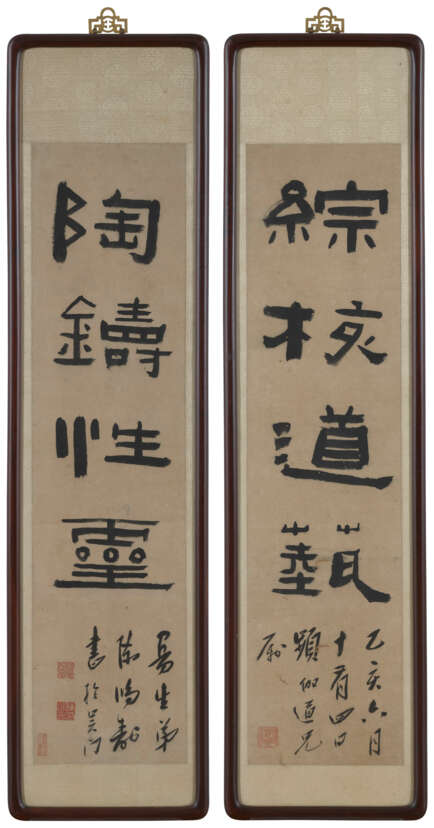 綜核道藝
乙亥六月
十有四日
頻伽道兄
屬
陶鑄性靈
曼生弟
陳鴻壽
書於吳門